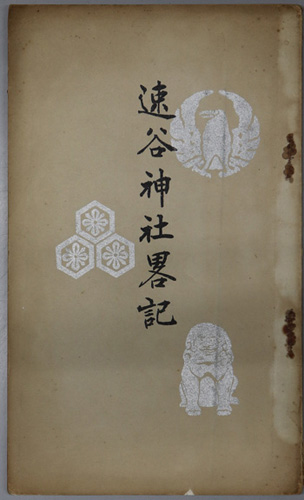 速谷神社畧記